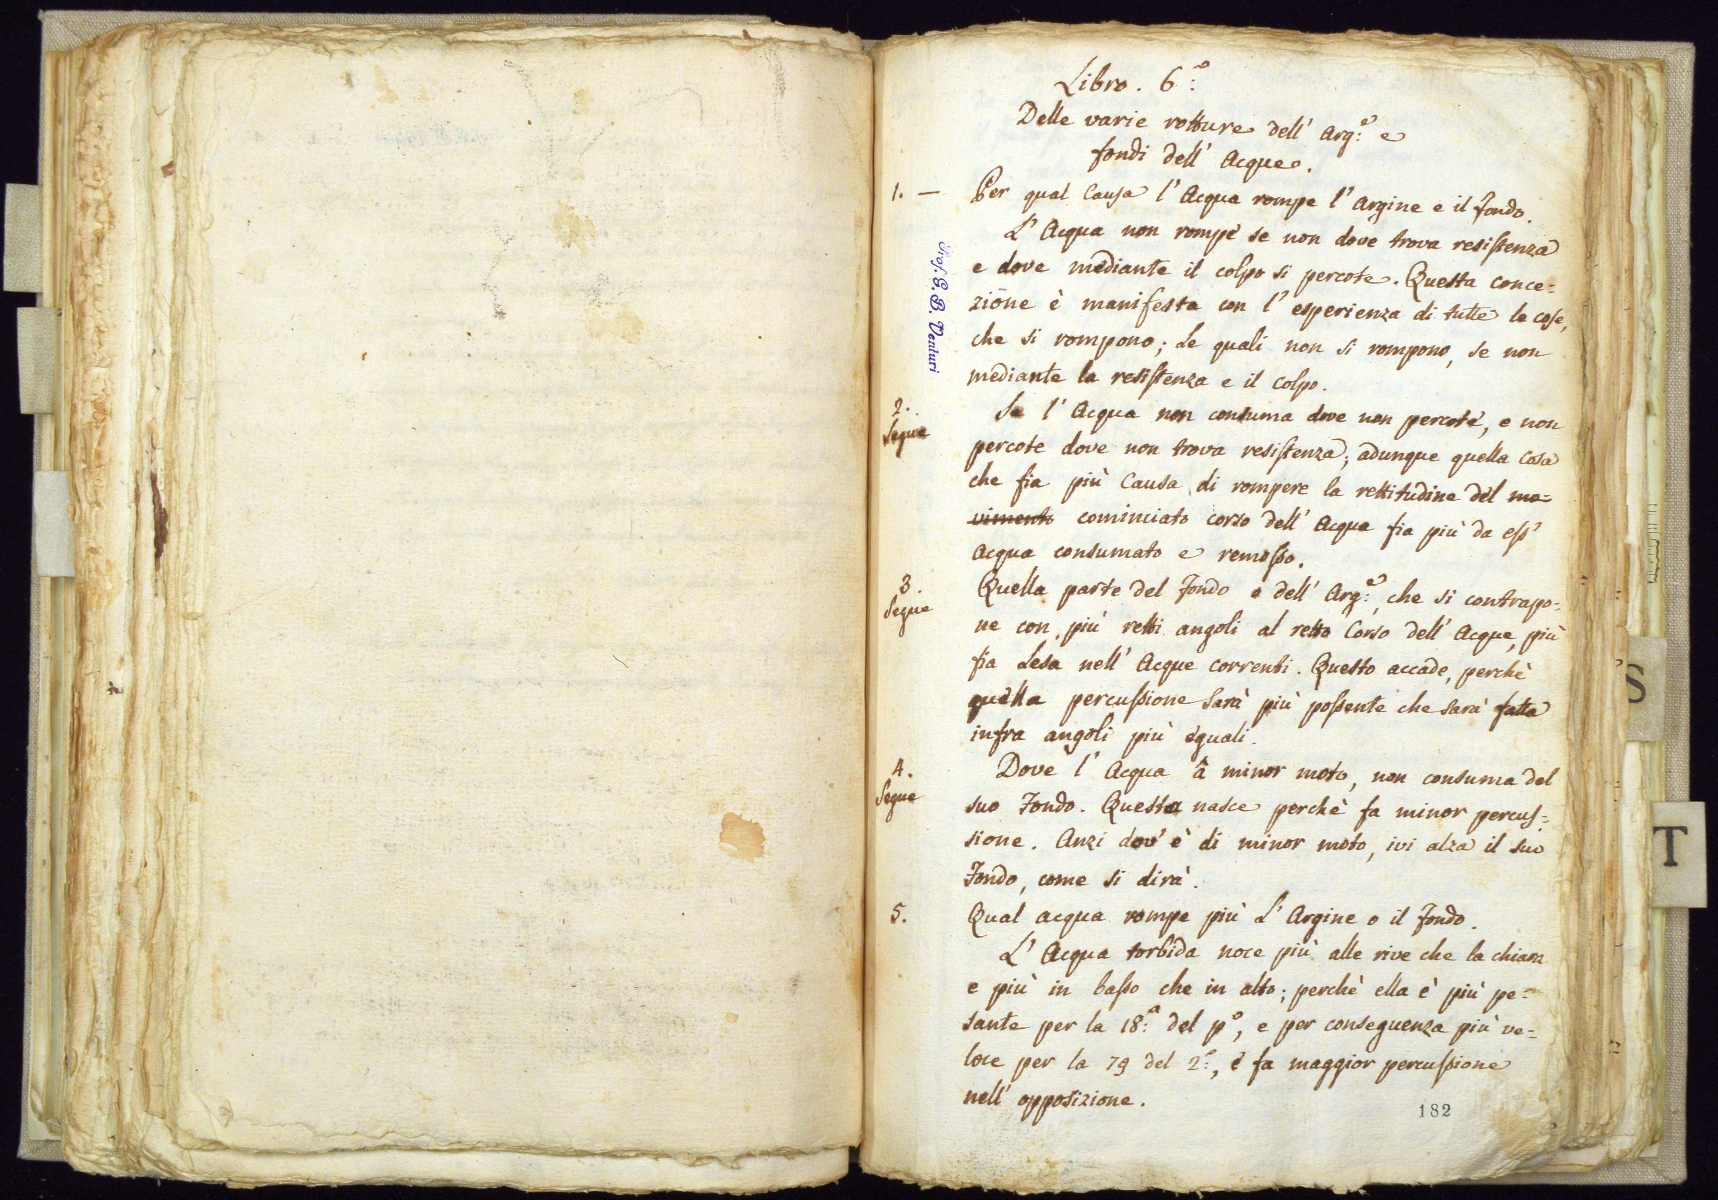 Libro. 6.º
Delle varie rotture dell' Arg:e e
fondi dell' Acque.
1. — Per qual Causa l' Acqua rompe l' Argine e il fondo.
L' Acqua non rompe se non dove trova resistenza
e dove mediante il colpo si percote. Questa conce=
zione è manifesta con l' esperienza di tutte le cose,
che si rompono; Le quali non si rompono, se non
mediante la resistenza e il colpo.
Prof. G. B. Venturi
2. Se l' Acqua non consuma dove non percote, e non
Segue
percote dove non trova resistenza; adunque quella cosa
che fia più Causa di rompere la rettitudine del mo=
vimento cominciato corso dell' Acqua fia più da ess'
Acqua consumato e remosso.
3. Quella parte del Fondo o dell' Arg:e, che si contrapo=
Segue
ne con più retti angoli al retto Corso dell' Acque, più
fia Lesa nell' Acque correnti. Questo accade, perchè
quella percussione sarà più possente che sarà fatta
infra angoli più eguali.
4. Dove l' Acqua â minor moto, non consuma del
Segue
suo Fondo. Questo nasce perchè fa minor percus=
sione. Anzi dov' è di minor moto, ivi alza il suo
Fondo, come si dirà.
5. Qual acqua rompe più L' Argine o il Fondo.
L' Acqua torbida noce più alle rive che la chiara
e più in basso che in alto; perchè ella è più pe=
sante per la 18:a del pº, e per conseguenza più ve=
loce per la 79 del 2:º, e fa maggior percussione
nell' opposizione.
182
S
T